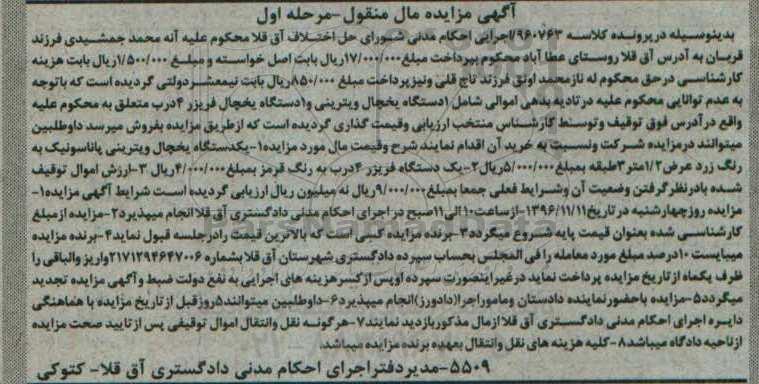 آگهی مزایده مال منقول-مرحله اول
بدینوسیله درپرونده کلاسه ۹۶۰۷۶۳/اجرایی احکام مدنی شورای حل اختلاف آق قلا محکوم علیه آنه محمد جمشیدی فرزند
قربان به آدرس آق قلا روستای عطا آباد محکوم بپرداخت مبلغ۱۷/۰۰۰/۰۰۰ریال بابت اصل خواسته و مبلغ ۱/۵۰۰/۰۰۰ریال بابت هزینه
کارشناسی درحق محکوم له نازمحمد اونق فرزند تاج قلی ونیزپرداخت مبلغ ۸۵۰/۰۰۰ریال بابت نیمعشردولتی گردیده است که باتوجه
به عدم توانایی محکوم علیه درتادیه بدهی اموالی شامل ۱دستگاه یخچال ویترینی و۱دستگاه یخچال فریزر ۴درب متعلق به محکوم علیه
واقع درآدرس فوق توقیف وتوسط کارشناس منتخب ارزیابی وقیمت گذاری گردیده است که ازطریق مزایده بفروش میرسد داوطلبین
میتوانند درمزایده شرکت ونسبت به خرید آن اقدام نمایند شرح وقیمت مال مورد مزایده۱-یکدستگاه یخچال ویترینی پاناسونیک به
رنگ زرد عرض۱/۲متر۳طبقه بمبلغ۵/۰۰۰/۰۰۰ریال۲-یک دستگاه فریزر ۴درب به رنگ قرمز بمبلغ۴/۰۰۰/۰۰۰ریال ۳-ارزش اموال توقیف
شده بادرنظرگرفتن وضعیت آن وشرایط فعلی جمعا بمبلغ۹/۰۰۰/۰۰۰ریال نه میلیون ریال ارزیابی گردیده است شرایط آگهی مزایده۱-
مزایده روزچهارشنبه در تاریخ۱۳۹۶/۱۱/۱۱-ازساعت۱۰الی۱۱صبح در اجرای احکام مدنی دادگستری آق قلاانجام میپذیرد۲-مزایده ازمبلغ
کارشناسی شده بعنوان قیمت پایه شروع میگردد۳-برنده مزایده کسی است که بالاترین قیمت رادرجلسه قبول نماید۴-برنده مزایده
میبایست ۱۰درصد مبلغ مورد معامله را فی المجلس بحساب سپرده دادگستری شهرستان آق قلا بشماره ۲۱۷۱۲۹۴۶۴۷۰۰۶واریز والباقی را
ظرف یکماه ازتاریخ مزایده پرداخت نماید درغیراینصورت سپرده اوپس ازکسرهزینه های اجرایی به نفع دولت ضبط وآگهی مزایده تجدید
میگردد۵-مزایده باحضورنماینده دادستان وماموراجرا(دادورز)انجام میپذیرد۶-داوطلبین میتوانند۵روزقبل ازتاریخ مزایده با هماهنگی
دایره اجرای احکام مدنی دادگستری آق قلاازمال مذکوربازدید نمایند۷-هرگونه نقل وانتقال اموال توقیفی پس ازتایید صحت مزایده
ازناحیه دادگاه میباشد۸-کلیه هزینه های نقل وانتقال بعهده برنده مزایده میباشد
۵۵۰۹-مدیردفتراجرای احکام مدنی دادگستری آق قلا- کتوکی